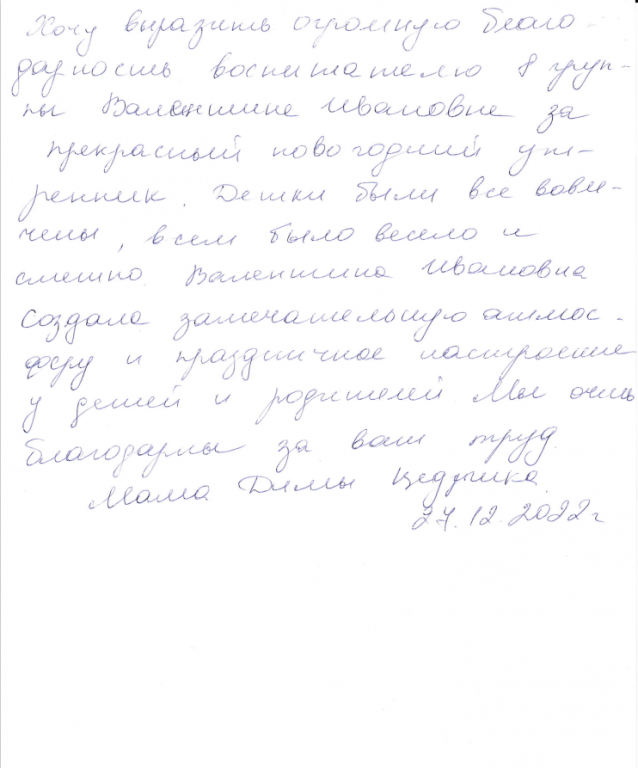 Хочу выразить огромную благо-
дарность воспитателю 8 груп-
пы Валентине Ивановне за
прекрасный новогодний ут-
ренник. Детки были все вовле-
чены, всем было весело и
смешно. Валентина Ивановна
создала замечательную атмос-
феру и праздничное настроение
у детей и родителей. Мы очень
благодарны за ваш труд.
Мама Димы
27.12.2022г